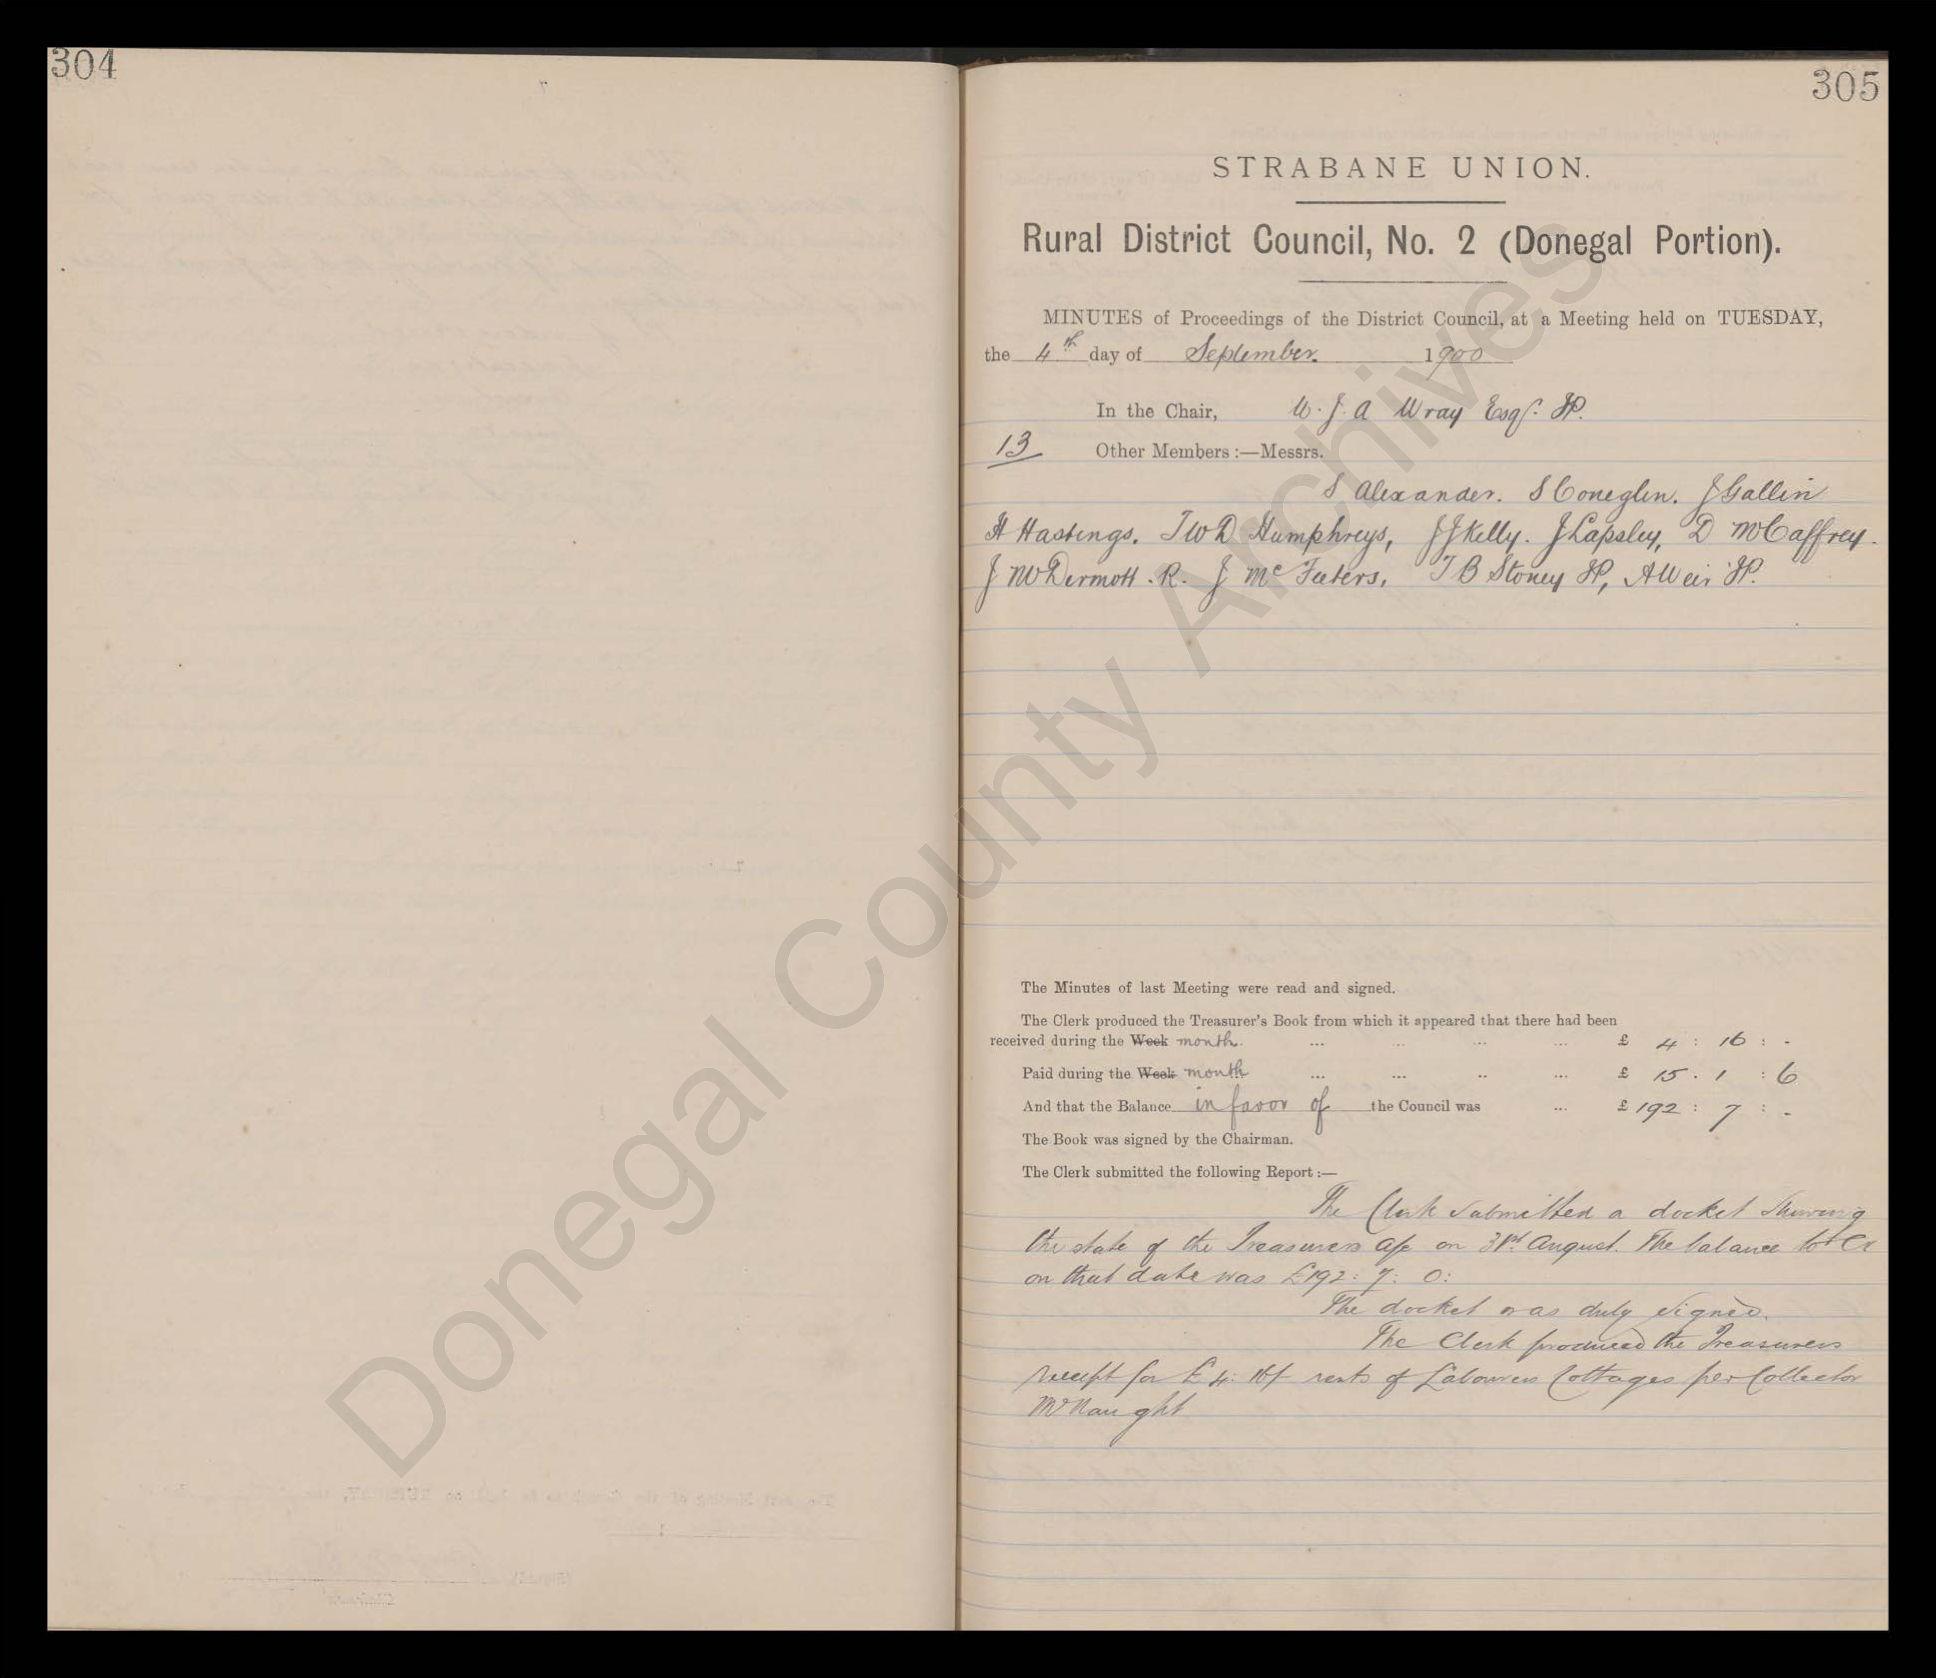 304
305
STRABANE UNION.
Rural District Council, No. 2 (Donegal Portion).
MINUTES of Proceedings of the District Council, at a Meeting held on TUESDAY,
the 4th day of September. 1900
In the Chair, W. J. A Wray Esqr. JP.
13 Other Members :—Messrs.
S Alexander. S Coneglen. J Gallin
H Hastings. T W D Humphreys, J J Kelly. J Lapsley, D McCaffrey.
J McDermott. R. J McFeeters, T B Stoney JP, A Weir JP.
The Minutes of last Meeting were read and signed.
The Clerk produced the Treasurer's Book from which it appeared that there had been
received during the Week month. ... ... ... ... £ 4 : 16 : -
Paid during the Week month ... ... ... ... £ 15 . 1 : 6
And that the Balance in favor of the Council was ... £ 192 : 7 : -
The Book was signed by the Chairman.
The Clerk submitted the following Report :—
The Clerk submitted a docket shewing
the state of the Treasurers a/c on 31st August. The balance to Cr
on that date was £192: 7: 0:
The docket was duly signed.
The Clerk produced the Treasurers
receipt for £4: 16/ rents of Labourers Cottages per Collector
McNaught
Donegal County Archives